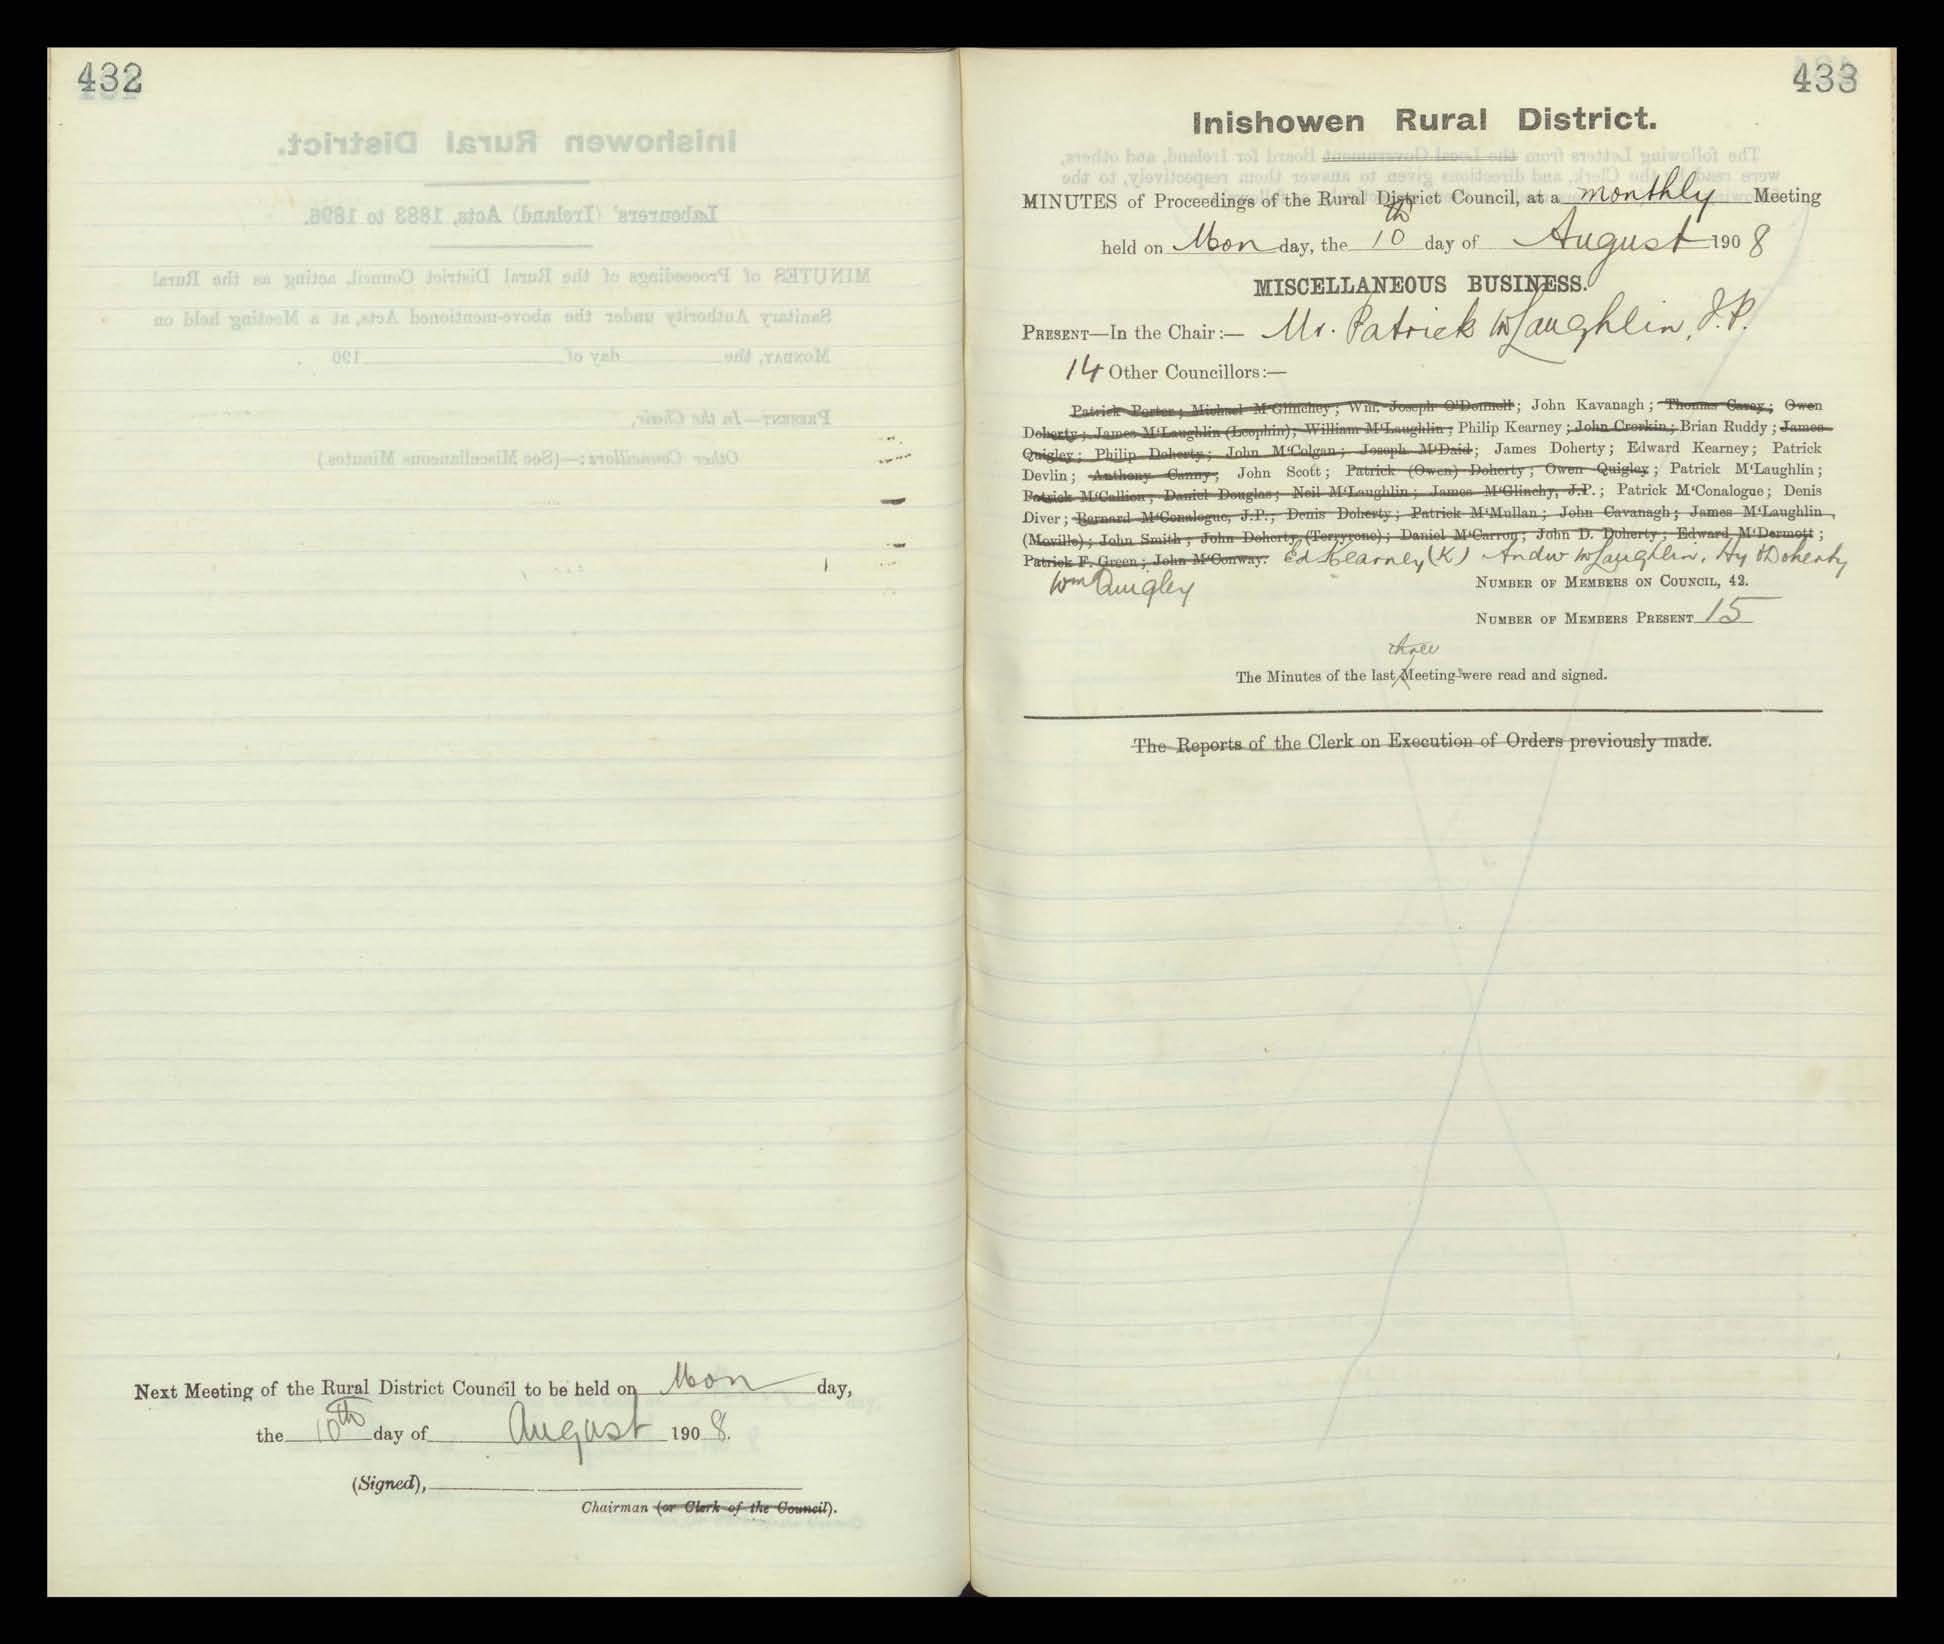 432
Next Meeting of the Rural District Council to be held on Mon day,
the 10th day of August 1908.
(Signed),
Chairman (or Clerk of the Council).
433
Inishowen Rural District.
MINUTES of Proceedings of the Rural District Council, at a monthly Meeting
held on Mon day, the 10th day of August 1908
MISCELLANEOUS BUSINESS.
PRESENT—In the Chair:— Mr. Patrick McLaughlin, J.P.
14 Other Councillors:—
Patrick Porter; Michael M'Glinchey; Wm. Joseph O'Donnell; John Kavanagh; Thomas Carey; Owen
Doherty; James M'Laughlin (Leophin); William M'Laughlin; Philip Kearney; John Crerkin; Brian Ruddy; James
Quigley; Philip Doherty; John M'Colgan; Joseph M'Daid; James Doherty; Edward Kearney; Patrick
Devlin; Anthony Canny; John Scott; Patrick (Owen) Doherty; Owen Quigley; Patrick M'Laughlin;
Patrick M'Callion; Daniel Douglas; Neil M'Laughlin; James M'Glinchy, J.P.; Patrick M'Conalogue; Denis
Diver; Bernard M'Conalogue, J.P.; Denis Doherty; Patrick M'Mullan; John Cavanagh; James M'Laughlin
(Moville); John Smith; John Doherty (Terryrone); Daniel M'Carron; John D. Doherty; Edward M'Dermott;
Patrick F. Green; John M'Conway. Ed Kearney (K) Andw McLaughlin, Hy O'Doherty
Wm Quigley
NUMBER OF MEMBERS ON COUNCIL, 42.
NUMBER OF MEMBERS PRESENT 15
three
The Minutes of the last Meetings were read and signed.
The Reports of the Clerk on Execution of Orders previously made.